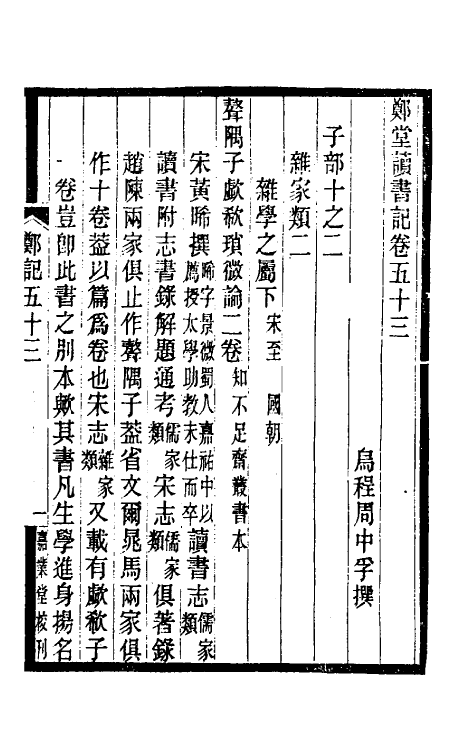 鄭堂讀書記卷五十三
烏程周中孚撰
子部十之二
雜家類二
雜學之屬下宋至 國朝
聱隅子歔欷瑣微論二卷知不足齋叢書本
宋黃晞撰晞字景微蜀人嘉祐中以薦授太學助教未仕而卒讀書志儒家類
讀書附志書錄解題通考儒家類宋志儒家類俱著錄
趙陳兩家俱止作聱隅子葢省文爾晁馬兩家俱
作十卷葢以篇爲卷也宋志雜家類又載有歔欷子
一卷豈卽此書之別本歟其書凡生學進身揚名
鄭記五十三
一
嘉業堂校刊